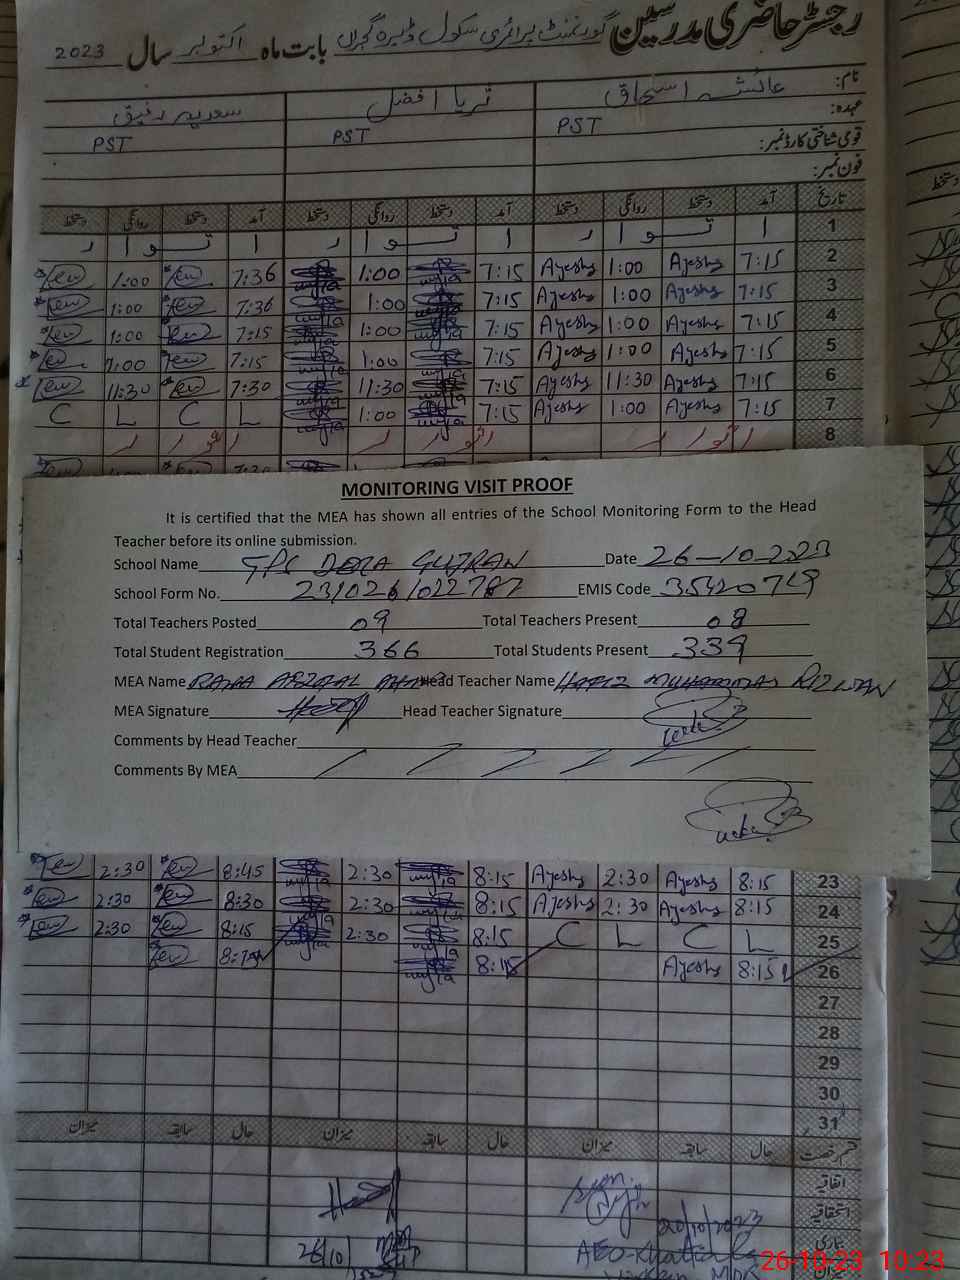 رجسٹر حاضری مدرسین گورنمنٹ پرائمری سکول ڈیرہ گجراں بابت ماہ اکتوبر سال 2023
نام: عائشہ اسحاق ثریا افضل سعدیہ رفیق
عہدہ: PST PST PST
قومی شناختی کارڈ نمبر:
فون نمبر:
تاریخ آمد دستخط روانگی دستخط آمد دستخط روانگی دستخط آمد دستخط روانگی دستخط
1 ا توا ر ا توا ر ا توا ر
2 7:15 Ayesha 1:00 Ayesha 7:15 1:00 7:36 1:00
3 7:15 Ayesha 1:00 Ayesha 7:15 1:00 7:36 1:00
4 7:15 Ayesha 1:00 Ayesha 7:15 1:00 7:15 1:00
5 7:15 Ayesha 1:00 Ayesha 7:15 1:00 7:15 1:00
6 7:15 Ayesha 11:30 Ayesha 7:15 11:30 7:30 11:30
7 7:15 Ayesha 1:00 Ayesha 7:15 1:00 L C L C
8 اتوار اتوار اتوار
MONITORING VISIT PROOF
It is certified that the MEA has shown all entries of the School Monitoring Form to the Head
Teacher before its online submission.
School Name GPS DERA GUJRAN Date 26-10-2023
School Form No. EMIS Code
Total Teachers Posted 09 Total Teachers Present 08
Total Student Registration 366 Total Students Present 339
MEA Name Head Teacher Name HAFIZ MUHAMMAD RIZWAN
MEA Signature Head Teacher Signature
Comments by Head Teacher
Comments By MEA
23 8:15 Ayesha 2:30 Ayesha 8:15 2:30 8:45 2:30
24 8:15 Ayesha 2:30 Ayesha 8:15 2:30 8:30 2:30
25 L C L C 8:15 2:30 8:15 2:30
26 8:15 Ayesha 8:15
27
28
29
30
31
قسم رخصت حال سابقہ میزان حال سابقہ میزان حال سابقہ میزان
اتفاقیہ
استحقاقیہ
بیماری 20/10/2023
میزان 26/10
26-10-23 10:23